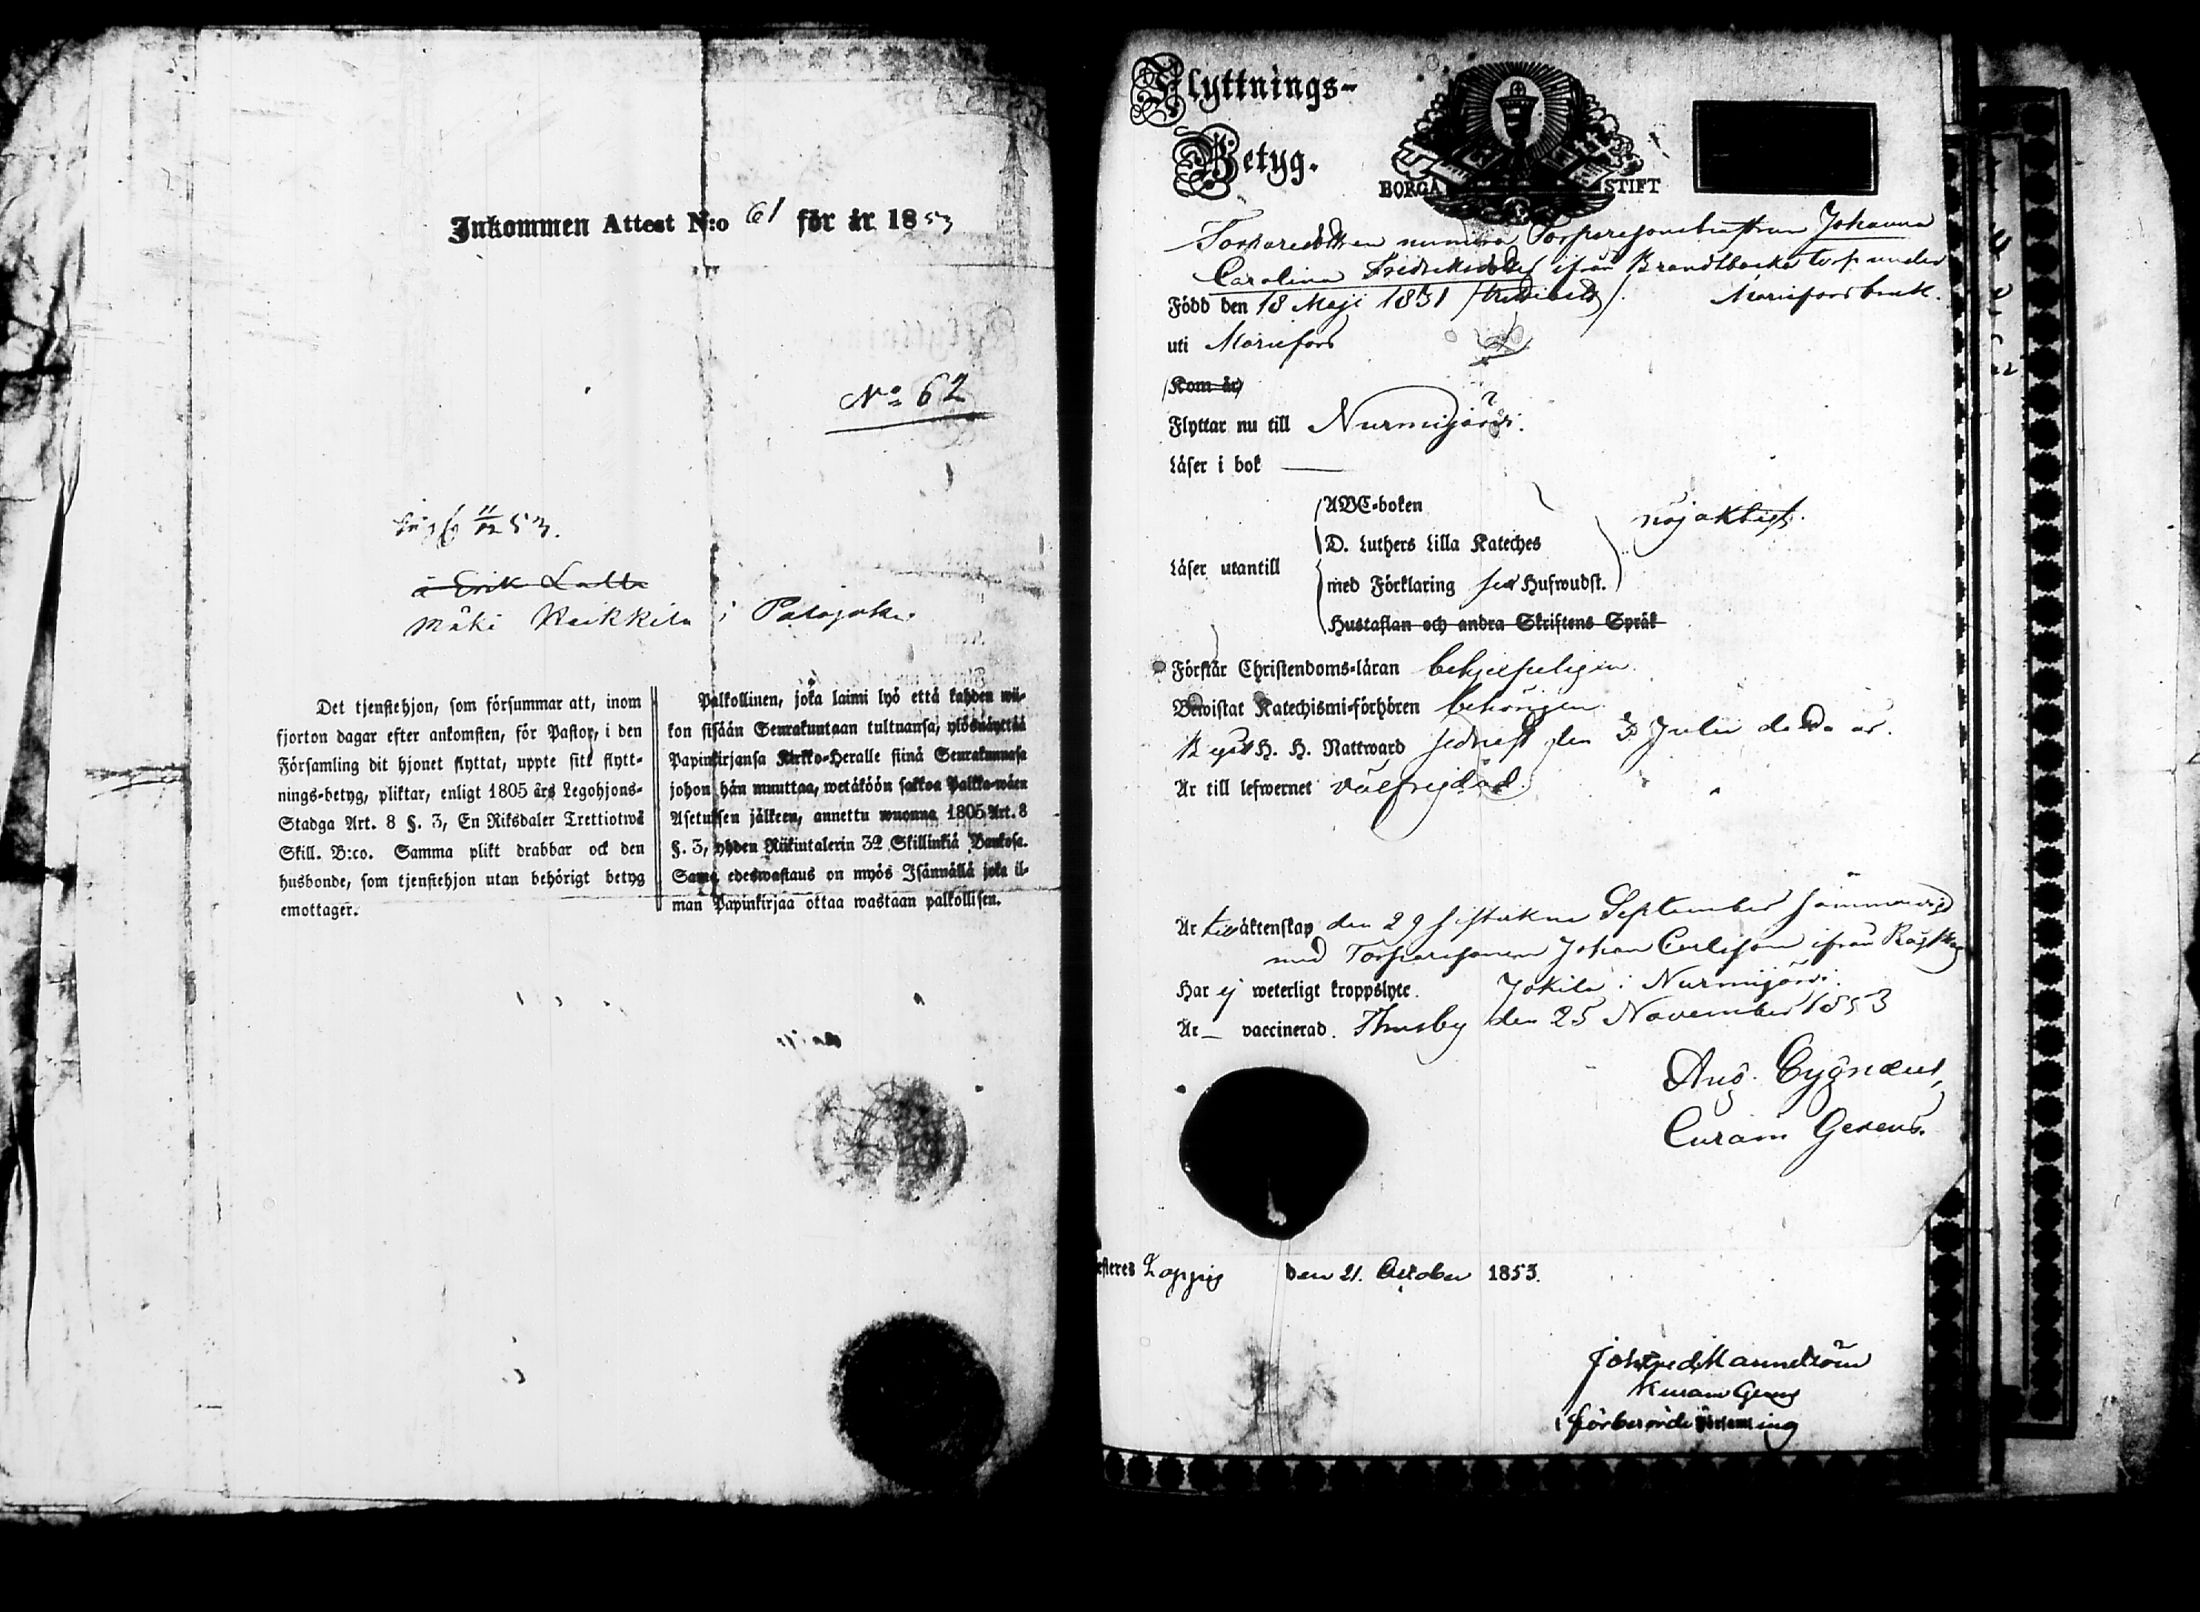 Inkommen Attest N:o 61 för år 1853
No 62
11/12 53.
å Erik Lalla
Mäki Heikkilä i Palojoki.
Det tjenstehjon, som försummar att, inom
fjorton dagar efter ankomsten, för Pastor, i den
Församling dit hjonet flyttat, uppte sitt flytt-
nings-betyg, pliktar, enligt 1805 års Legohjons-
Stadga Art. 8 §. 3, En Riksdaler Trettiotwå
Skill. B:co. Samma plikt drabbar ock den
husbonde, som tjenstehjon utan behörigt betyg
emottager.
Palkollinen, joka laimi lyö että kahden wii-
kon sisään Seurakuntaan tultuansa, ylösnäyttää
Papinkirjansa Kirkko-Heralle siinä Seurakunnasa
johon hän muuttaa, wetäköön sakkoa Palkka-wäen
Asetuksen jälkeen, annettu wuonna 1805 Art. 8
§. 3, yhden Riikintalerin 32 Skillinkiä Bankosa.
Sama edeswastaus on myös Isännällä joka il-
man Papinkirjaa ottaa wastaan palkollisen.
Flyttnings-
Betyg.
BORGÅ STIFT
Torparedottren numera Torparesonehustrun Johanna
Carolina Fredriksdotter ifrån Brandtbacka torp under
Född den 18 Maji 1831 Mariefors bruk.
uti Mariefors
Kom år
Flyttar nu till Nurmijärvi.
Läser i bok
Läser utantill
ABC-boken
D. Luthers Lilla Kateches
med Förklaring sex Hufwudst.
Hustaflan och andra Skriftens Språk
nöjaktigt.
Förstår Christendoms-läran behjelpeligen
Bewistat Katechismi-förhören behörigen
Begått H. H. Nattward sednast den 3 Julii detta år.
Är till lefwernet välfrejdad.
Är till äktenskap den 29 sistvikne September sammanvigd
med Torparesonen Johan Carlsson ifrån
Har ej weterligt kroppslyte. Jokila i Nurmijärvi.
Är — vaccinerad. Thusby den 25 November 1853
Aug. Cygnæus,
Curam Gerens.
Loppis den 21. October 1853.